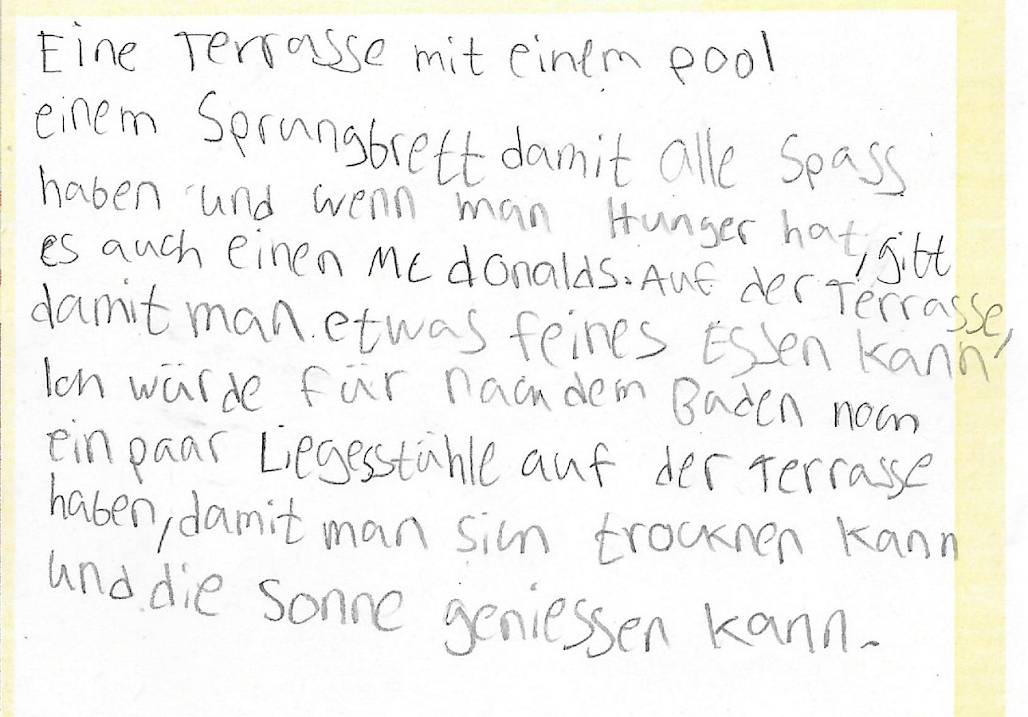 Eine Terrasse mit einem pool
einem Sprungbrett damit alle Spass
haben und wenn man Hunger hat, gitt
es auch einen Mc donalds. Auf der Terrasse,
damit man etwas feines Essen kann
Ich würde für nach dem Baden noch
ein paar Liegesstühle auf der Terrasse
haben, damit man sich trocknen kann
und die Sonne geniessen kann.